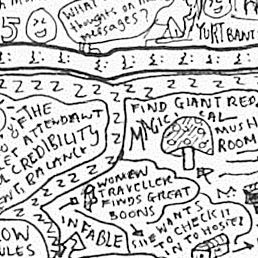 WHAT
thoughts on m
messages?
YURT BANT
15
1: 1: 1: 1: 1: 1: 1:
Z Z Z Z Z Z Z Z Z Z Z
THE
ATTENDANT
CREDIBILITY
BALANCE
FIND GIANT RED
MAGICAL
MUSH
ROOM
WOMEN
TRAVELLER
FINDS GREAT
BOONS
IN FABLE
SHE WANTS
TO CHECK IT
IN TO HOSTEL
OW
ULES